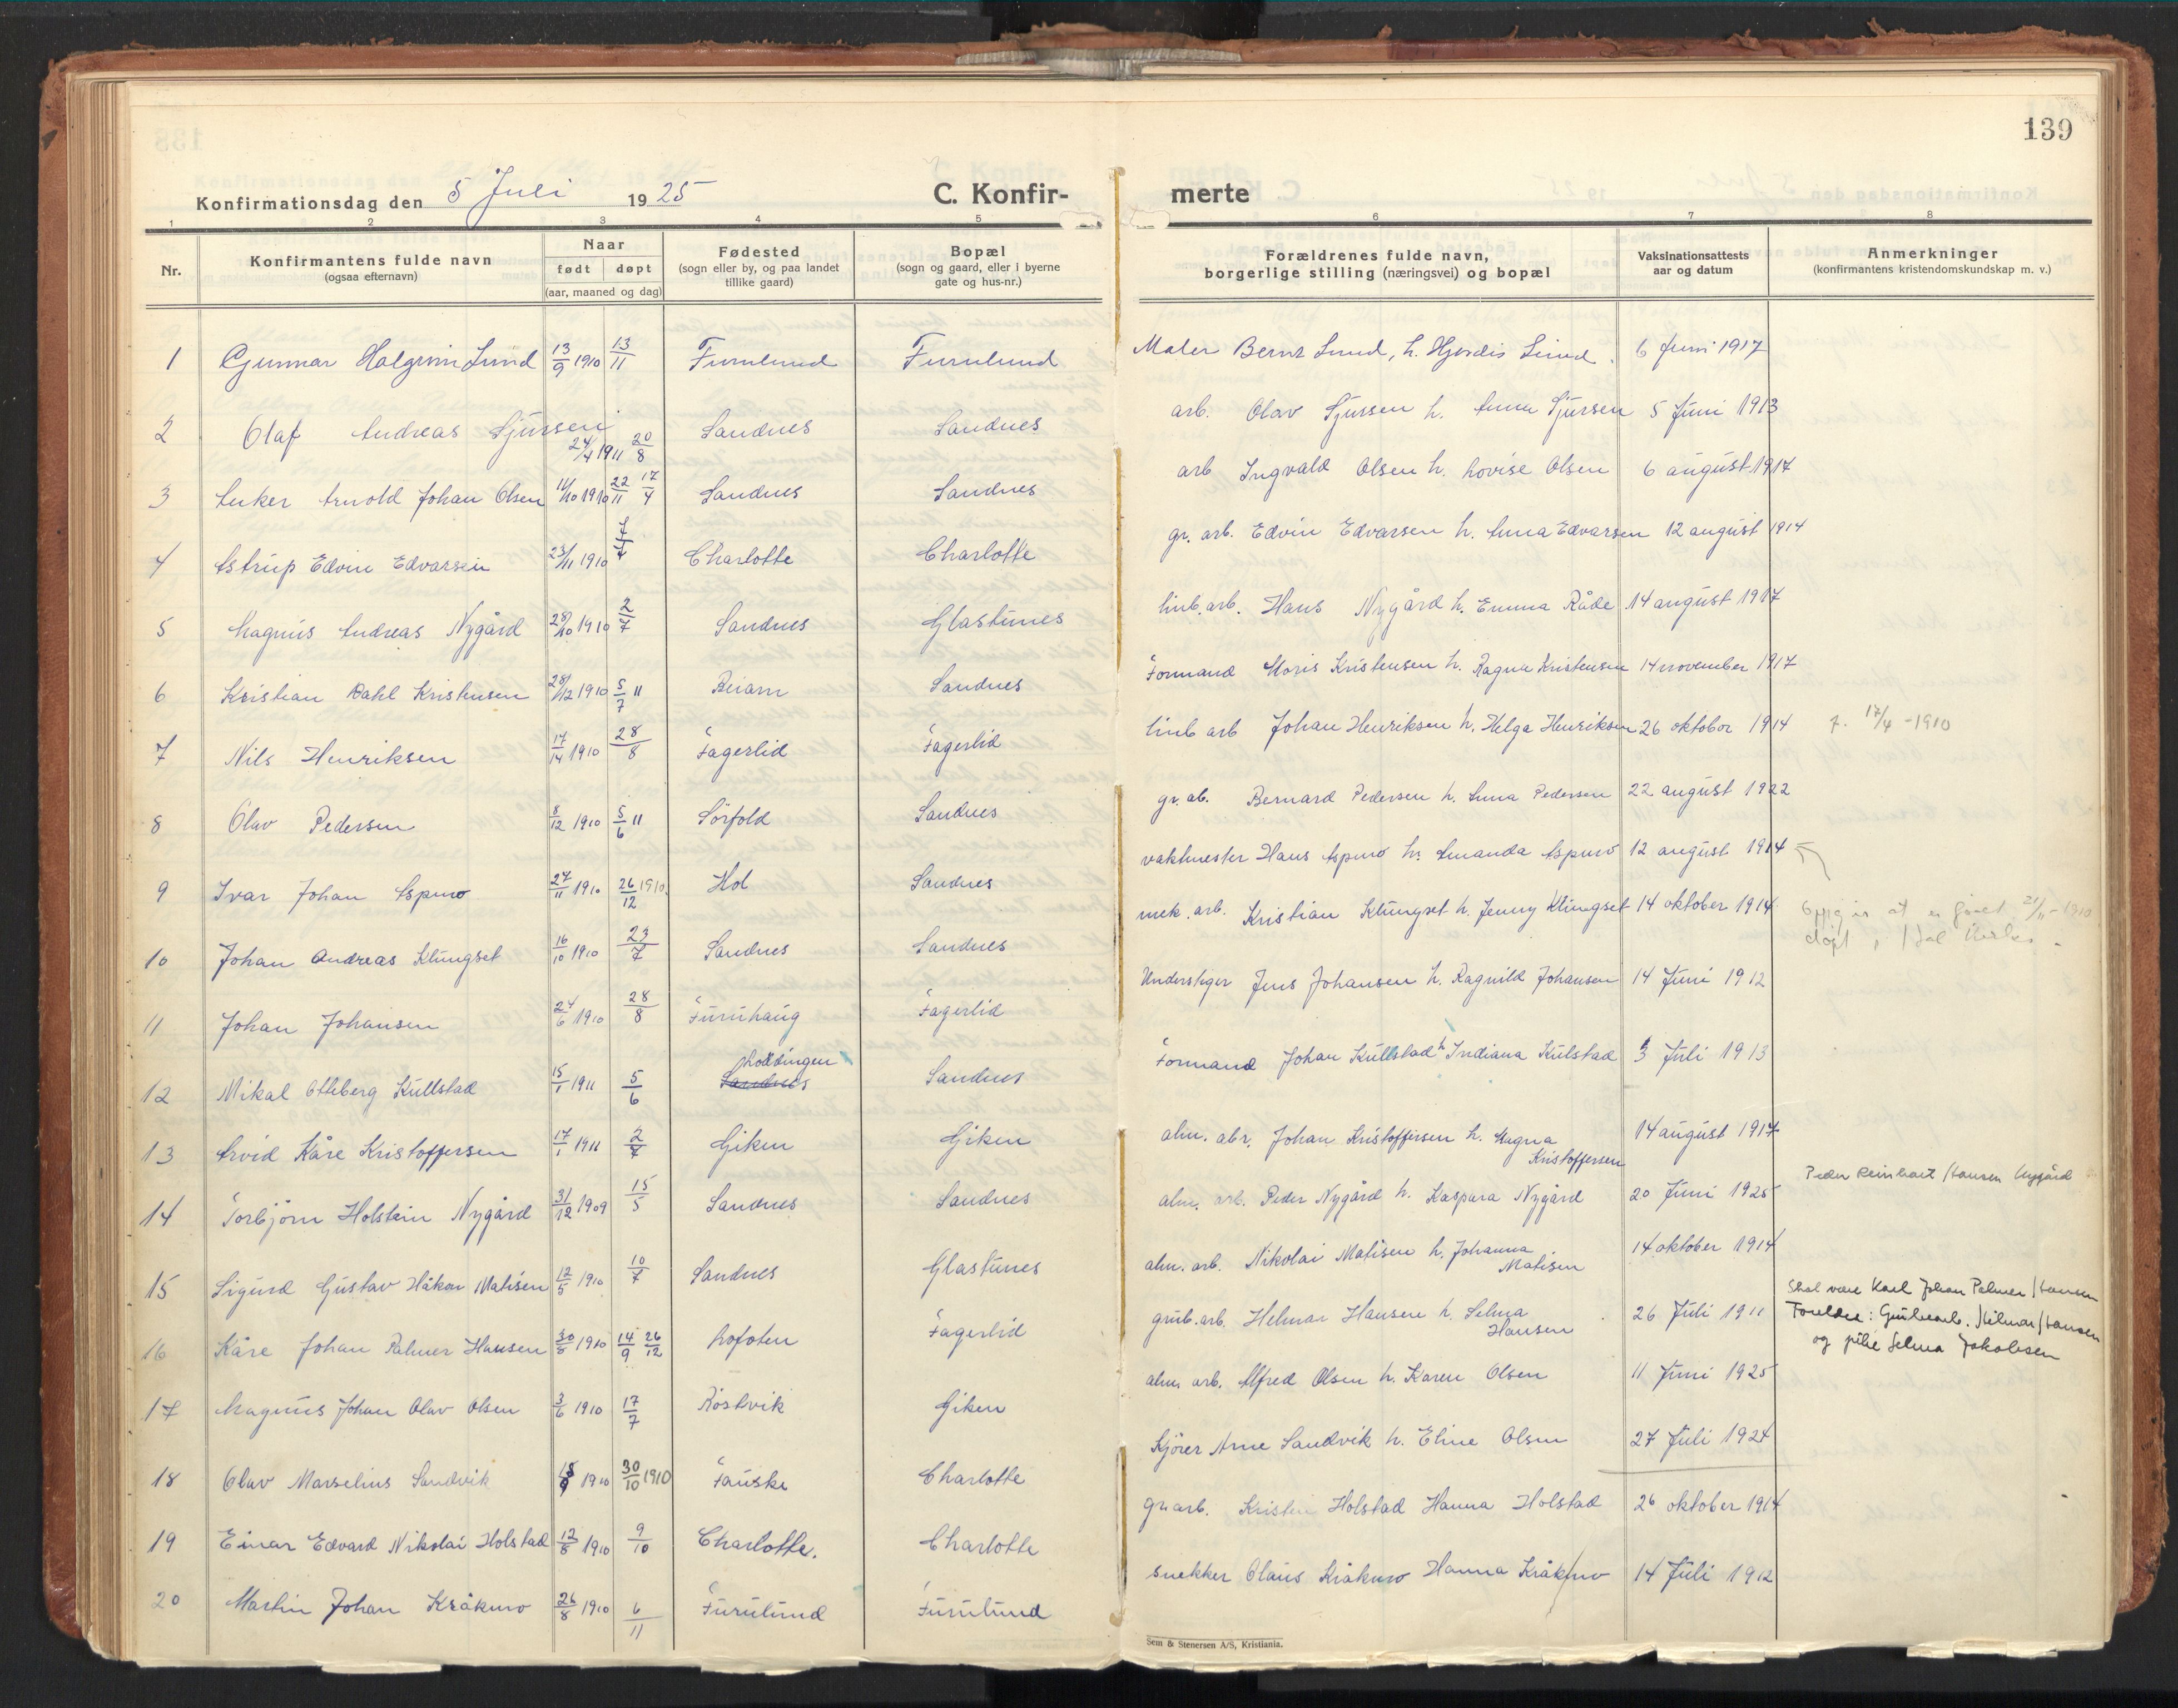 139
Konfirmationsdag den 5 Juli 1925
C. Konfir-
merte
1 2 3 4 5 6 7 8
Nr.
Konfirmantens fulde navn
(ogsaa efternavn)
Naar
født døpt
(aar, maaned og dag)
Fødested
(sogn eller by, og paa landet
tillike gaard)
Bopæl
(sogn og gaard, eller i byerne
gate og hus-nr.)
Forældrenes fulde navn,
borgerlige stilling (næringsvei) og bopæl
Vaksinationsattests
aar og datum
Anmerkninger
(konfirmantens kristendomskundskap m. v.)
1 Gunnar Halgrim Lund 13/9 1910 13/11 Furulund Furulund Maler Bernt Lund, h. Hjerdis Lund. 6 Juni 1917
2 Olaf Andreas Sjursen 24/4 1911 20/8 Sandnes Sandnes arb. Olav Sjursen h. Anna Sjursen 5 Juni 1913
3 Anker Arnold Johan Olsen 11/10 1910 22/11 17/4 Sandnes Sandnes arb Ingvald Olsen h. Lovise Olsen 6 august 1917
4 Astrup Edvin Edvarsen 23/11 1910 7/7 Charlotte Charlotte gr. arb. Edvin Edvarsen h. Anna Edvarsen 12 august 1914
5 Magnus Andreas Nygård 28/10 1910 2/7 Sandnes Glastunes linb. arb. Hans Nygård h. Emma Råde 14 august 1917
6 Kristian Dahl Kristensen 28/12 1910 5/7 11 Beiarn Sandnes Formand Moris Kristensen h. Ragna Kristensen 14 november 1917
7 Nils Henriksen 17/14 1910 28/8 Fagerlid Fagerlid linb arb Johan Henriksen h. Helga Henriksen 26 oktober 1914 f. 17/4 - 1910
8 Olav Pedersen 8/12 1910 5/6 11 Sörfold Sandnes gr. ab. Bernard Pedersen h. Anna Pedersen 22 august 1922
9 Ivar Johan Aspmo 27/11 1910 26/12 1910 Hol Sandnes vaktmester Hans Aspmo h. Amanda Aspmo 12 august 1914
10 Johan Andreas Klungset 16/10 1910 23/7 Sandnes Sandnes mek. arb. Kristian Klungset h. Jenny Klungset 14 oktober 1914 21/11 - 1910
døpt i Hol
11 Johan Johansen 24/6 1910 28/8 Furuhaug Fagerlid Understiger Jens Johansen h. Ragnild Johansen 14 Juni 1912
12 Mikal Otteberg Kullstad 15/1 1911 5/6 Løddingen Sandnes Sandnes Formand Johan Kullstad h Indiana Kulstad 3 Juli 1913
13 Arvid Kåre Kristoffersen 17/1 1911 2/7 Giken Giken alm. abr. Johan Kristoffersen h. Magna Kristoffersen 14 august 1917
14 Torbjörn Holstein Nygård 31/12 1909 15/5 Sandnes Sandnes alm. arb. Peder Nygård h. Kaspara Nygård 20 Juni 1925 Peder Reinhart Hansen Nygård
15 Sigurd Gustav Håkon Matisen 12/5 1910 10/7 Sandnes Glastunes alm. arb. Nikolai Matisen h. Johanna Matisen 14 oktober 1914
16 Kåre Johan Palmer Hansen 30/8 1910 14/9 26/12 Lofoten Fagerlid grub. arb. Helmar Hansen h. Selma Hansen 26 Juli 1911 Skal være Karl Johan Palmer Hansen
Foreldre: Grubearb. Hilmar Hansen
og pike Selma Jakobsen
17 Magnus Johan Olav Olsen 3/6 1910 17/7 Röstvik Giken alm. arb. Alfred Olsen h. Karen Olsen 11 Juni 1925
18 Olav Marselius Sandvik 1910 30/10 1910 Fauske Charlotte Kjörer Arne Sandvik h. Eline Olsen 27 Juli 1924
19 Einar Edvard Nikolai Holstad 12/8 1910 9/10 Charlotte. Charlotte gr. arb. Kristen Holstad Hanna Holstad 26 oktober 1914
20 Martin Johan Kråkmo 26/8 1910 6/11 Furulund Furulund snekker Olaus Kråkmo Hanna Kråkmo 14 Juli 1912
Sem & Stenersen A/S, Kristiania.